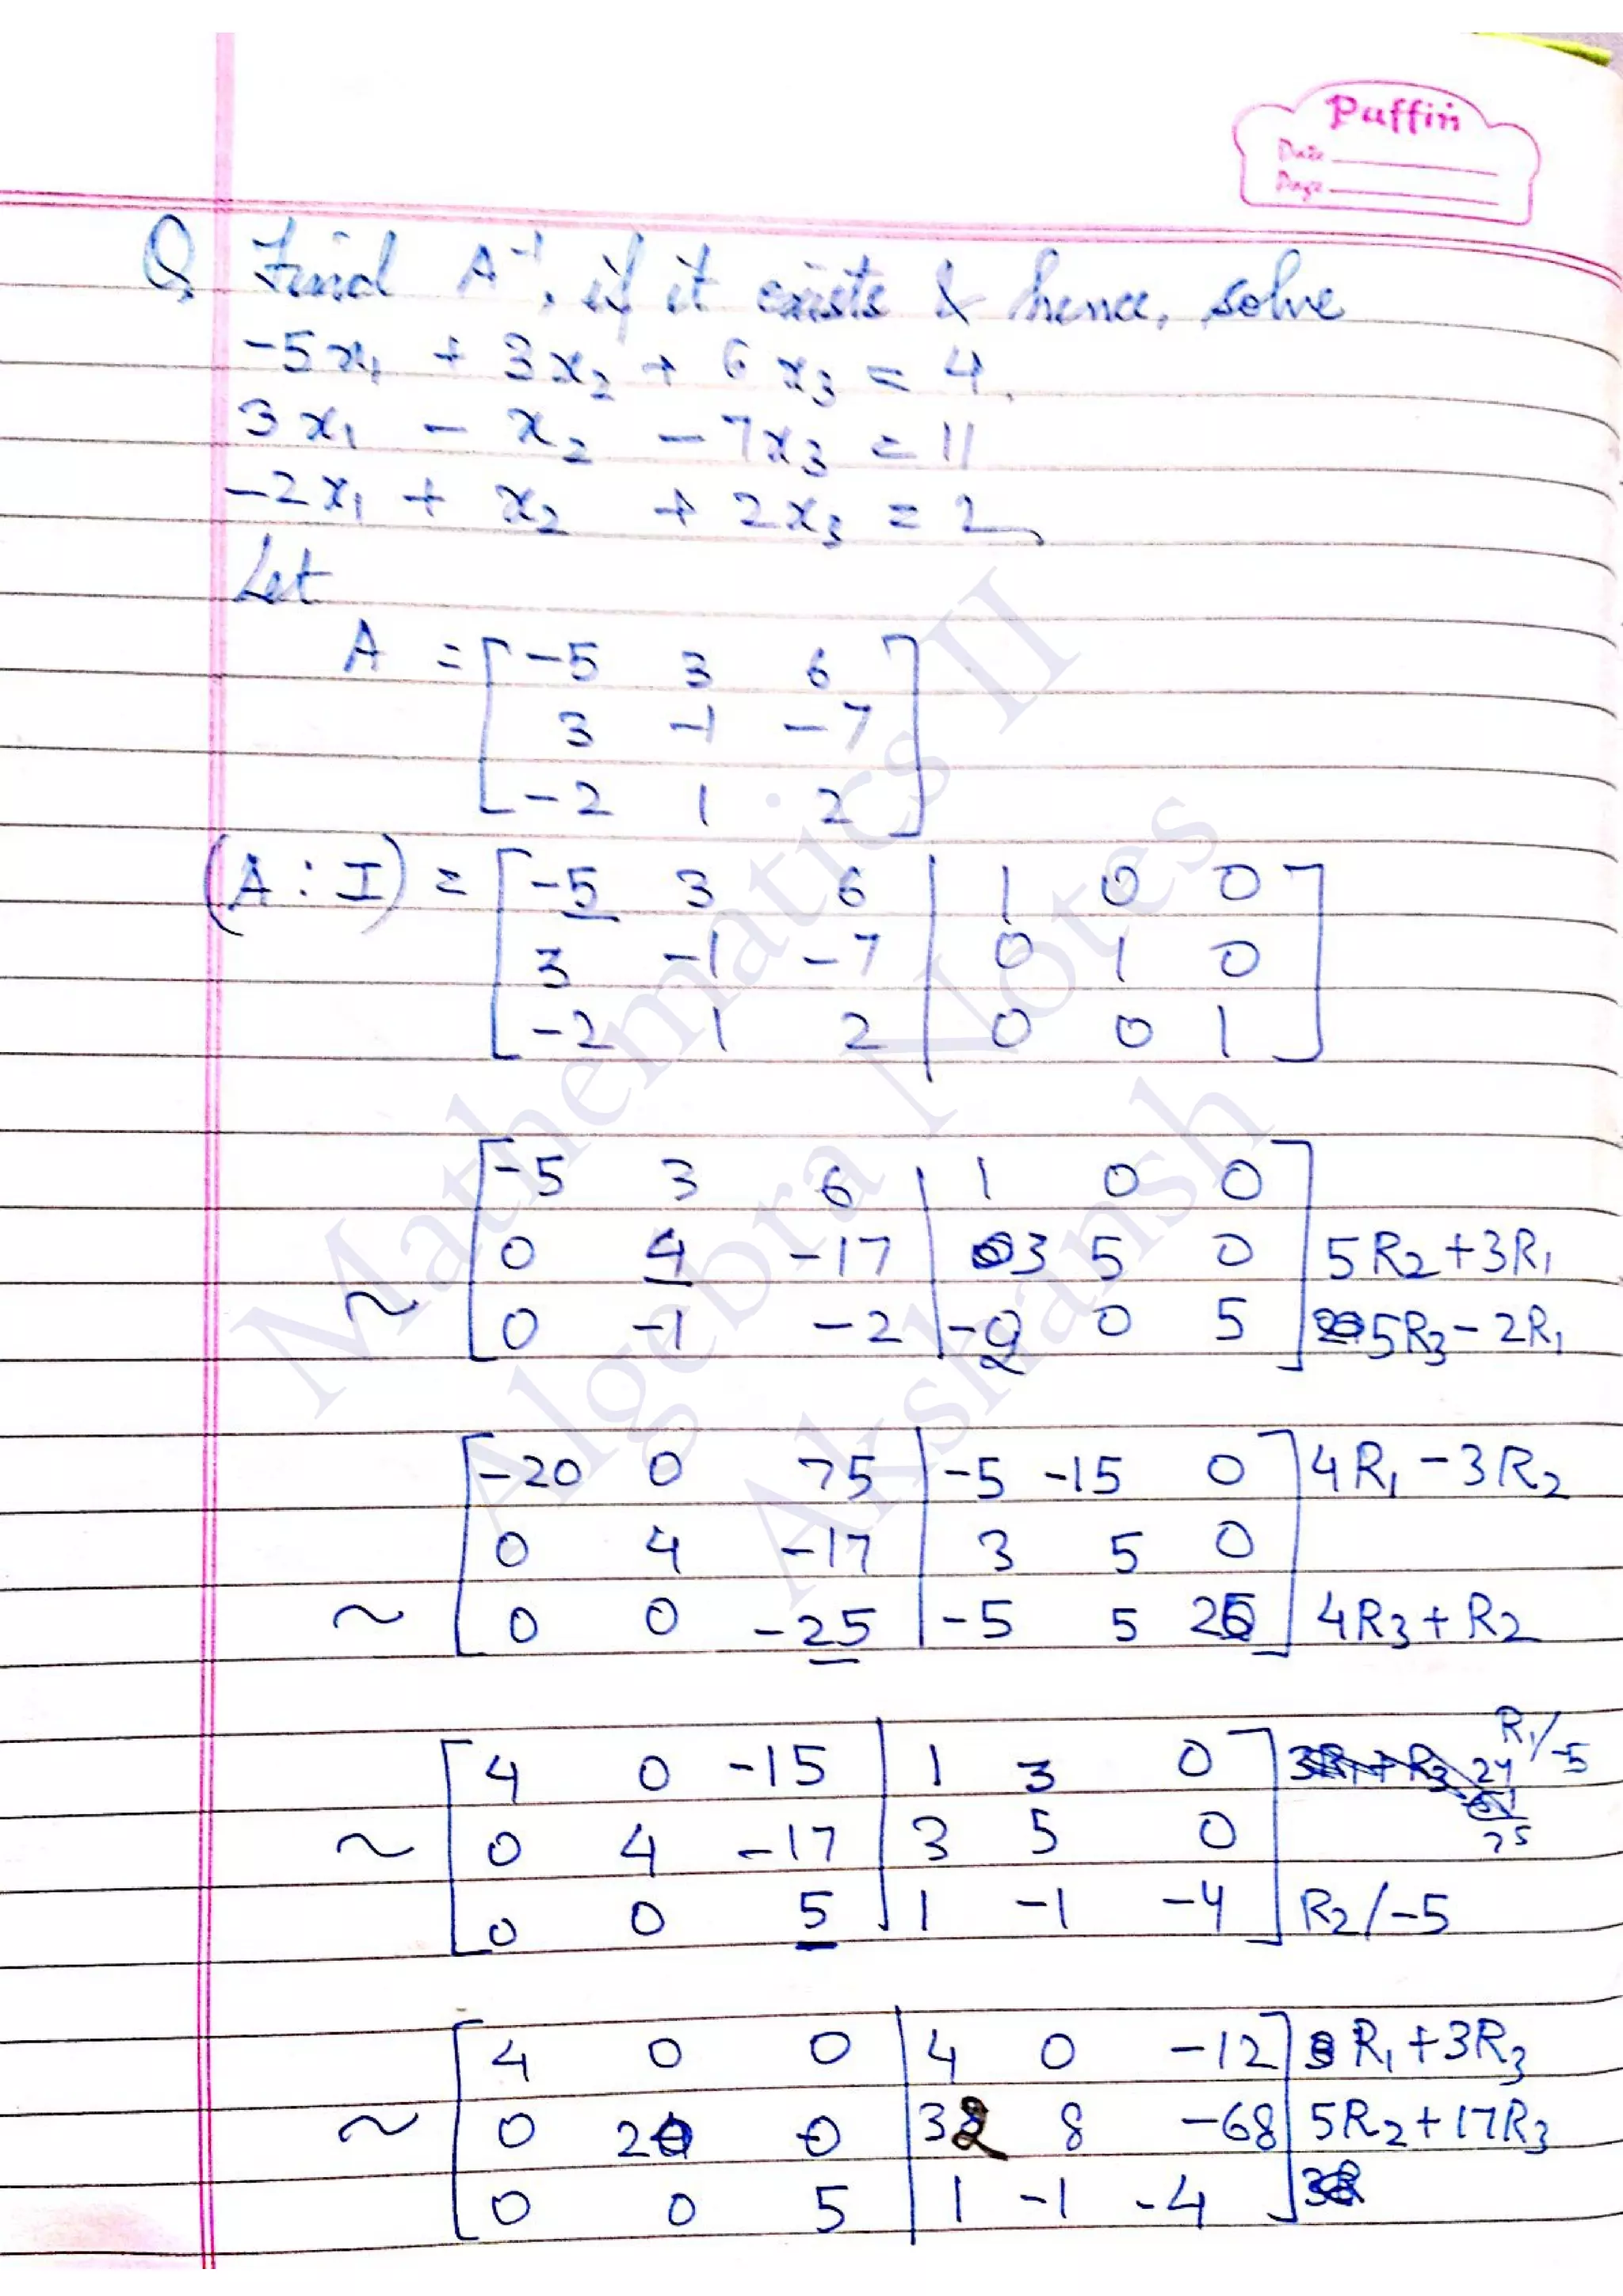 Puffin
Date
Page
Q. Find A⁻¹, if it exists & hence, solve
-5x₁ + 3x₂ + 6x₃ = 4
3x₁ - x₂ - 7x₃ = 11
-2x₁ + x₂ + 2x₃ = 2
Let
A = [ -5 3 6
3 -1 -7
-2 1 2 ]
(A : I) = [ -5 3 6 | 1 0 0
3 -1 -7 | 0 1 0
-2 1 2 | 0 0 1 ]
[ -5 3 6 | 1 0 0 ]
0 4 -17 | 3 5 0 5R₂+3R₁
~ 0 -1 -2 | -2 0 5 5R₃-2R₁
[ -20 0 75 | -5 -15 0 ] 4R₁-3R₂
0 4 -17 | 3 5 0
~ 0 0 -25 | -5 5 20 4R₃+R₂
[ 4 0 -15 | 1 3 0 ] R₁/-5
~ 0 4 -17 | 3 5 0
0 0 5 | 1 -1 -4 R₂/-5
[ 4 0 0 | 4 0 -12 ] R₁+3R₃
~ 0 20 0 | 32 8 -68 5R₂+17R₃
0 0 5 | 1 -1 -4
Mathematics II
Algebra Notes
Akshansh